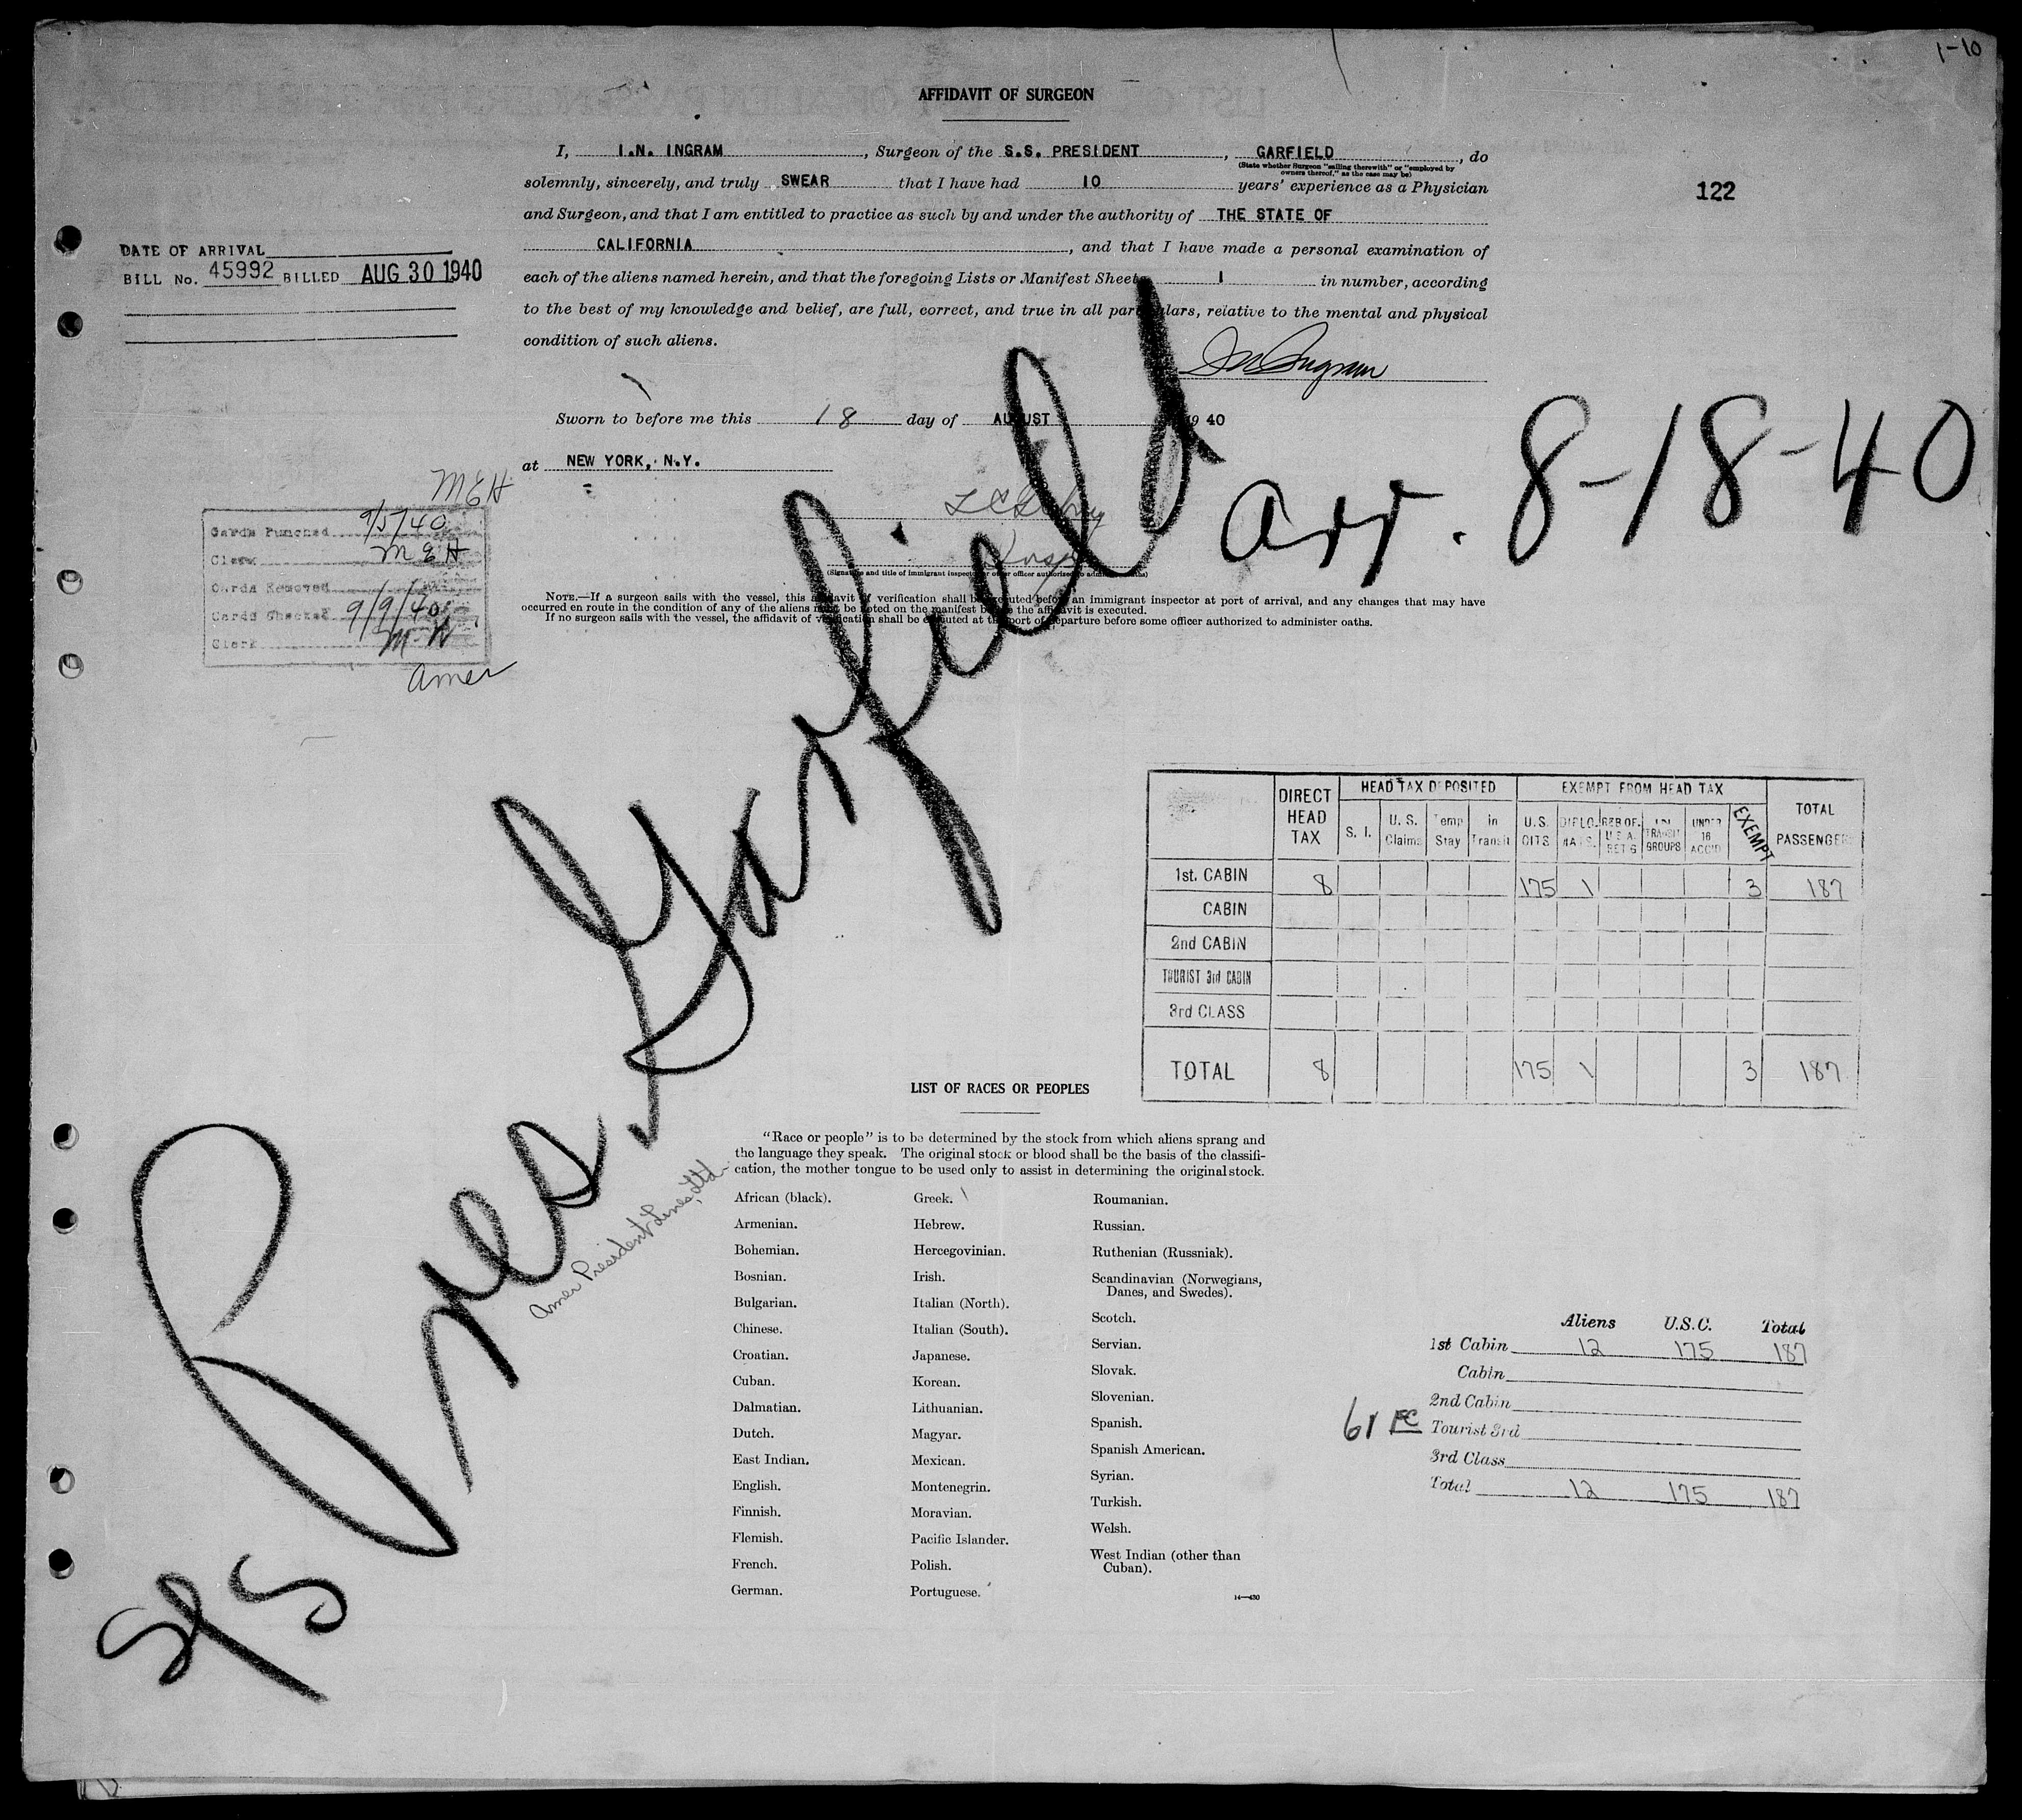 1-10
AFFIDAVIT OF SURGEON
I, I.N. INGRAM, Surgeon of the S.S. PRESIDENT, GARFIELD, do
(State whether Surgeon "sailing therewith" or "employed by
owners thereof," as the case may be)
solemnly, sincerely, and truly SWEAR that I have had 10 years' experience as a Physician
122
and Surgeon, and that I am entitled to practice as such by and under the authority of THE STATE OF
CALIFORNIA, and that I have made a personal examination of
each of the aliens named herein, and that the foregoing Lists or Manifest Sheets 1 in number, according
to the best of my knowledge and belief, are full, correct, and true in all particulars, relative to the mental and physical
condition of such aliens.
DATE OF ARRIVAL
BILL No. 45992 BILLED AUG 30 1940
Sworn to before me this 18 day of AUGUST 19 40
at NEW YORK, N.Y.
Arr. 8-18-40
MEH
Cards Punched 9/5/40
Clerk MEH
Cards Removed
Cards Checked 9/9/40
Clerk
Amer
(Signature and title of immigrant inspector or other officer authorized to administer oaths)
NOTE.—If a surgeon sails with the vessel, this affidavit of verification shall be executed before an immigrant inspector at port of arrival, and any changes that may have
occurred en route in the condition of any of the aliens must be noted on the manifest before the affidavit is executed.
If no surgeon sails with the vessel, the affidavit of verification shall be executed at the port of departure before some officer authorized to administer oaths.
S/S Pres. Garfield
Amer President Lines, Ltd
DIRECT HEAD TAX
HEAD TAX DEPOSITED
EXEMPT FROM HEAD TAX
TOTAL PASSENGERS
S. I. U. S. Claims Temp Stay In Transit U.S. CITS DIPLO. MATS. TRANSIT GROUPS UNDER 16 EXEMPT
1st. CABIN 8 175 1 3 187
CABIN
2nd CABIN
TOURIST 3rd CABIN
3rd CLASS
TOTAL 8 175 1 3 187
LIST OF RACES OR PEOPLES
"Race or people" is to be determined by the stock from which aliens sprang and
the language they speak. The original stock or blood shall be the basis of the classifi-
cation, the mother tongue to be used only to assist in determining the original stock.
African (black).
Armenian.
Bohemian.
Bosnian.
Bulgarian.
Chinese.
Croatian.
Cuban.
Dalmatian.
Dutch.
East Indian.
English.
Finnish.
Flemish.
French.
German.
Greek.
Hebrew.
Hercegovinian.
Irish.
Italian (North).
Italian (South).
Japanese.
Korean.
Lithuanian.
Magyar.
Mexican.
Montenegrin.
Moravian.
Pacific Islander.
Polish.
Portuguese.
Roumanian.
Russian.
Ruthenian (Russniak).
Scandinavian (Norwegians,
Danes, and Swedes).
Scotch.
Servian.
Slovak.
Slovenian.
Spanish.
Spanish American.
Syrian.
Turkish.
Welsh.
West Indian (other than
Cuban).
14—430
Aliens U.S.C. Total
1st Cabin 12 175 187
Cabin
2nd Cabin
Tourist 3rd
3rd Class
Total 12 175 187